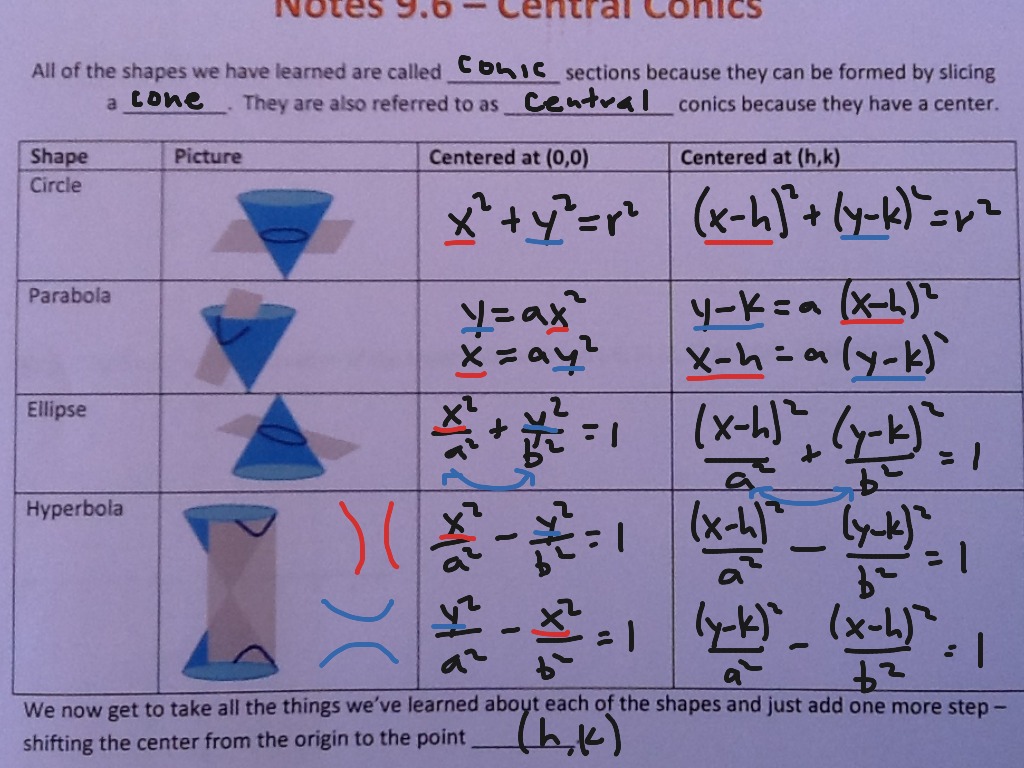 Notes 9.6 – Central Conics
All of the shapes we have learned are called conic sections because they can be formed by slicing
a cone. They are also referred to as central conics because they have a center.
Shape Picture Centered at (0,0) Centered at (h,k)
Circle
x² + y² = r² (x-h)² + (y-k)² = r²
Parabola
y = ax² y-k = a (x-h)²
x = ay² x-h = a (y-k)`
Ellipse
x²/a² + y²/b² = 1 (x-h)²/a² + (y-k)²/b² = 1
Hyperbola
x²/a² - y²/b² = 1 (x-h)²/a² - (y-k)²/b² = 1
y²/a² - x²/b² = 1 (y-k)²/a² - (x-h)²/b² = 1
We now get to take all the things we've learned about each of the shapes and just add one more step –
shifting the center from the origin to the point (h,k)